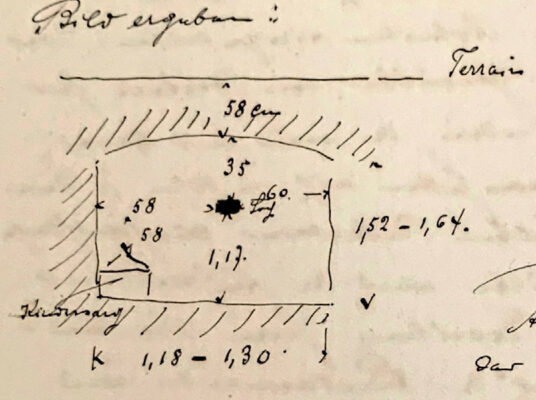 „Bild ergeben":
Terrain
58 cm
35
58
60.
Loch
58
1,52 – 1,64.
1,17.
Kindersarg
1,18 – 1,30.
dar